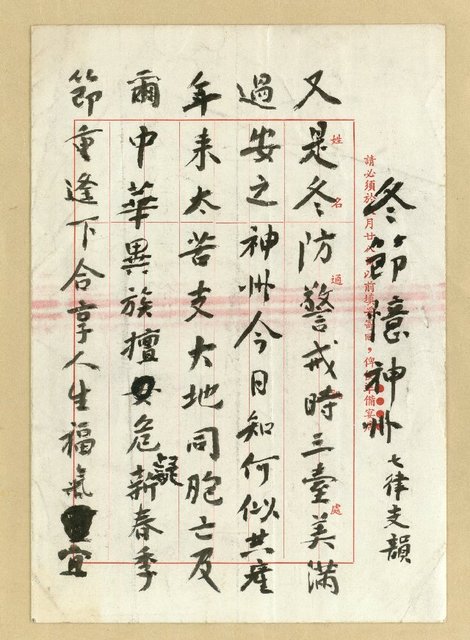 冬節憶神州 七律支韻
請必須於 月廿八 以前填 寄回，俾 準備宴
姓名 通 處
又是冬防警戒時三臺美滿
過安之神州今日知何似共產
年來太苦支大地同胞亡反
爾中華異族擅危疑新春季
節重逢下合享人生福氣宜